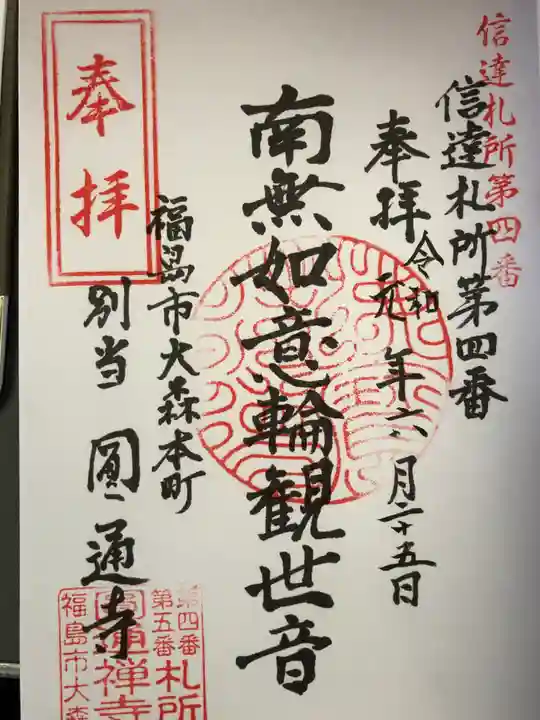 信達札所第四番
信達札所第四番
奉拝
令和
元年六月二十五日
南無如意輪観世音
福島市大森本町
別当 圓通寺
奉拝
第四番
第五番
札所
圓通禅寺
福島市大森